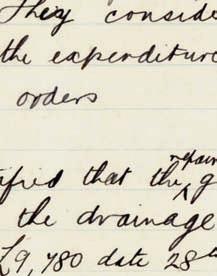 They conside
the expenditur
orders
ified that the repair g
the drainage
£9,780 date 28th